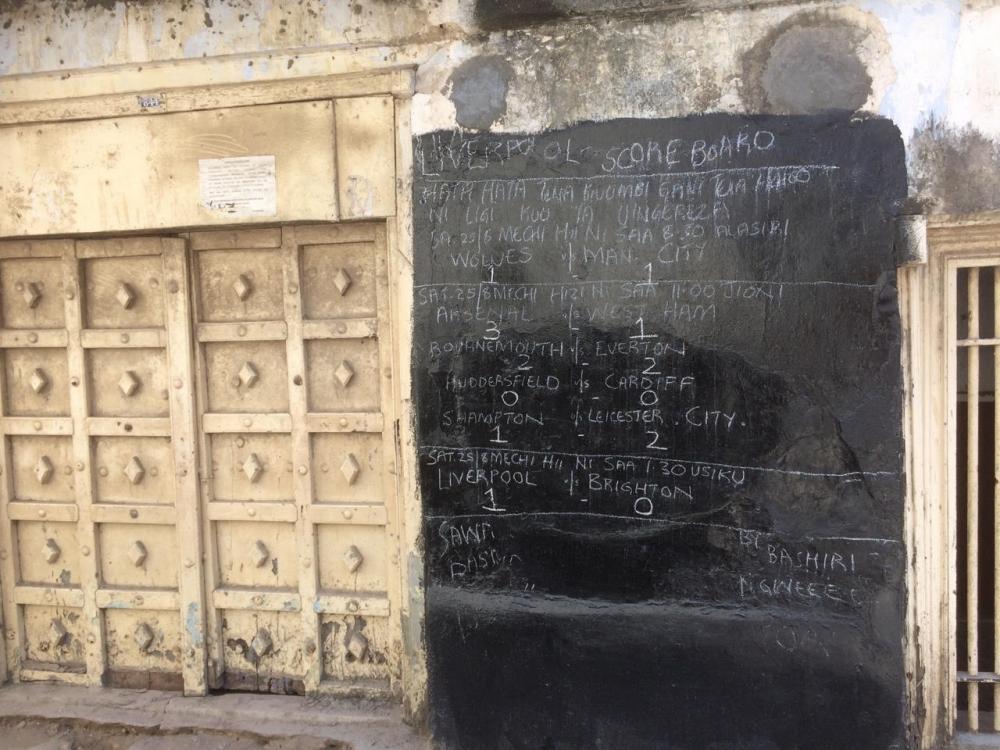 LIVERPOOL SCORE BOARD
HATA HATA TENA
NI LIGI KUU YA UINGEREZA
SAT. 25/8 MECHI HII NI SAA 8:30 ALASIRI
WOLVES V/S MAN. CITY
1 - 1
SAT. 25/8 MECHI HIZI NI SAA 11:00 JIONI
ARSENAL V/S WEST HAM
3 1
BOURNEMOUTH V/S EVERTON
2 - 2
HUDDERSFIELD V/S CARDIFF
0 - 0
SHAMPTON V/S LEICESTER . CITY.
1 - 2
SAT. 25/8 MECHI HII NI SAA 1:30 USIKU
LIVERPOOL V/S BRIGHTON
1 - 0
SAWA BY
BASHIRI
NGWEEE